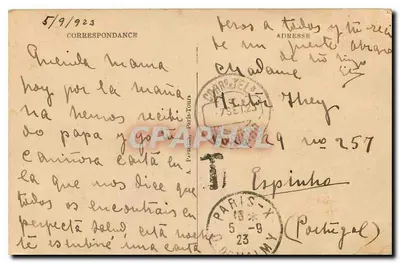 5/9/923
CORRESPONDANCE
Querida Mama
hoy por la mañana
na hemos recibi
do papa y yo tu
cariñosa carta en
la que nos dice que
todos os encontrais en
perfecta salud, esta noche
te escribiré una carta
ADRESSE
beros a todos y tu reci
be un fuerte abrazo
de tu hijo
Madame
Hector
Calle 29 nº 257
Espinho
(Portugal)
T
PARIS-X
13*
5-9
23
CPARAMA